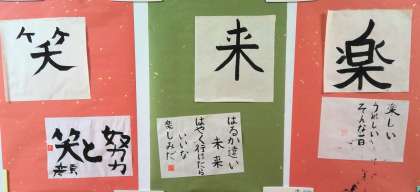 笑
努力
と
笑顔
来
はるか遠い
未来
はやく行けたら
いいな
楽しみだ
楽
楽しい
うれしい
そんな一日